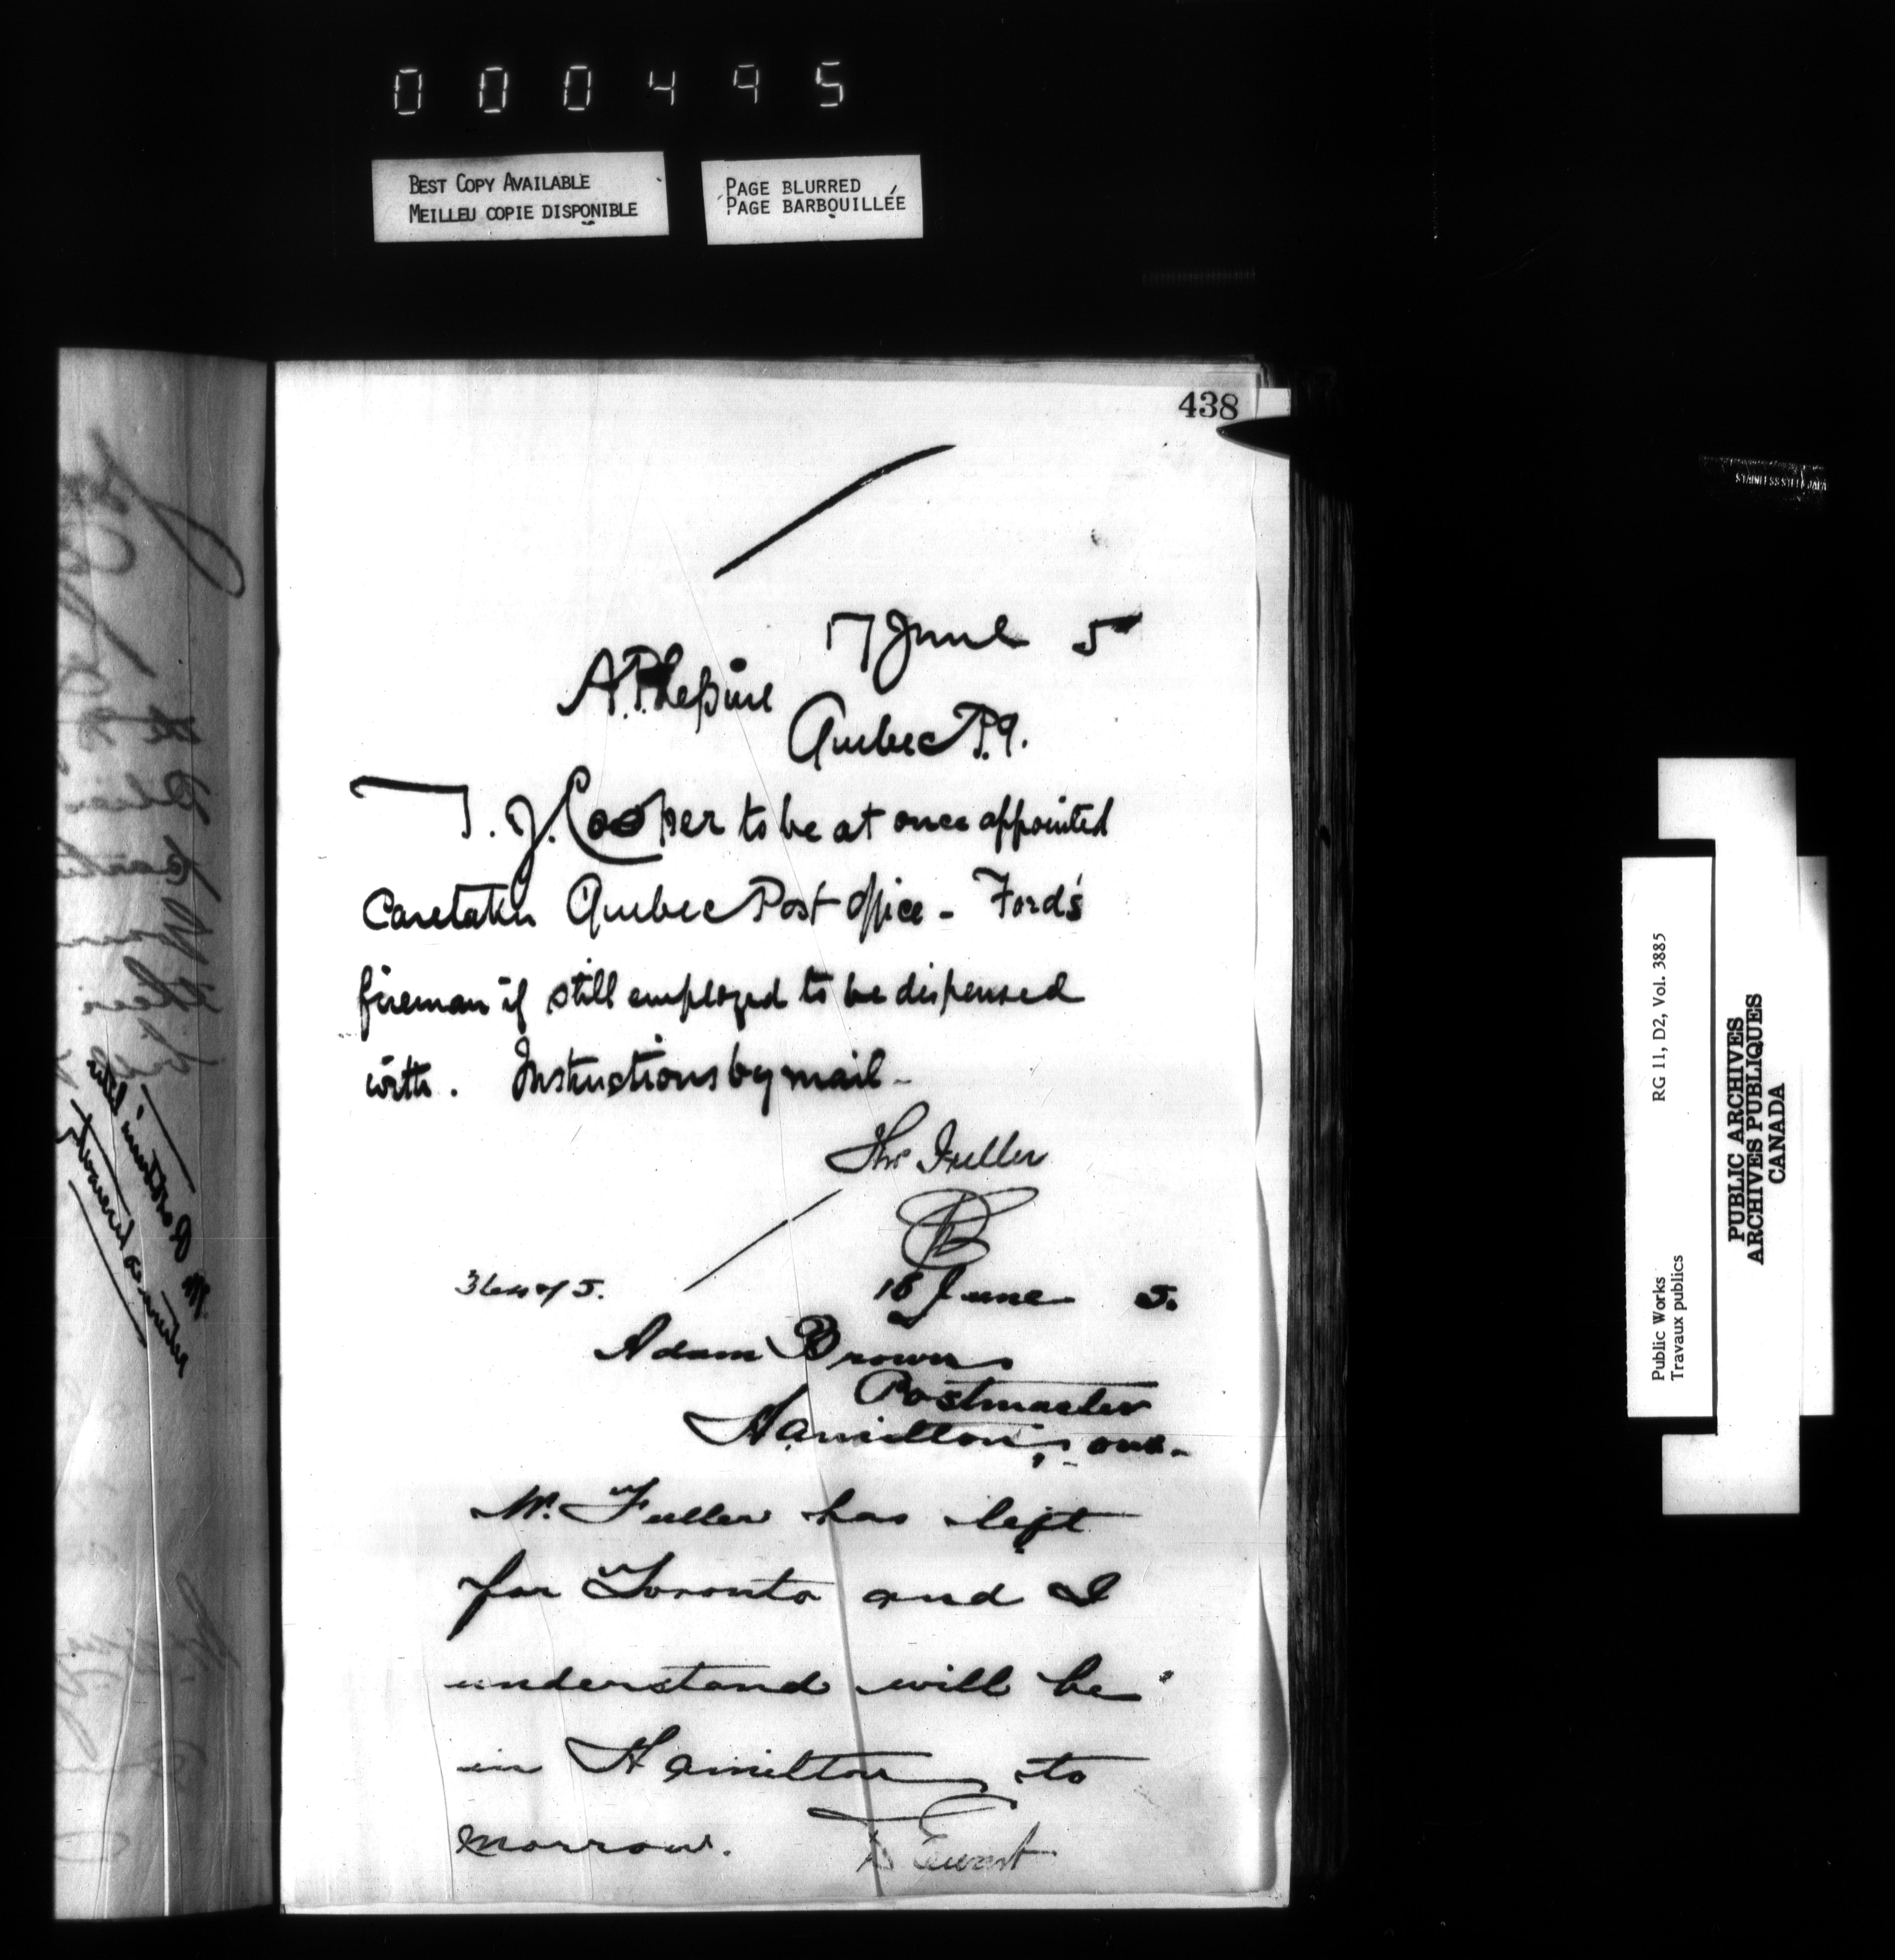 000495
BEST COPY AVAILABLE
MEILLEU COPIE DISPONIBLE
PAGE BLURRED
PAGE BARBOUILLÉE
438
17 June 5
A.P. Lepine
Quebec P.Q.
T. J. Cooper to be at once appointed
Caretaker Quebec Post Office - Ford's
fireman if still employed to be dispensed
with. Instructions by mail -
Thos Fuller
18 June 5.
Adam Brown
Postmaster
Hamilton, Ont.
Mr. Fuller has left
for Toronto and I
understand will be
in Hamilton to
morrow.
D Ewart
STAINLESS STEEL JAPAN
RG 11, D2, Vol. 3885
Public Works
Travaux publics
PUBLIC ARCHIVES
ARCHIVES PUBLIQUES
CANADA